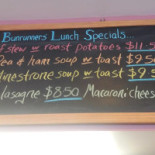 Bunrunners Lunch Specials...
stew or roast potatoes $11.5
Pea & ham soup or toast $9.50
inestrone soup or toast $9.5
lasagne $8.50 Macaroni chees